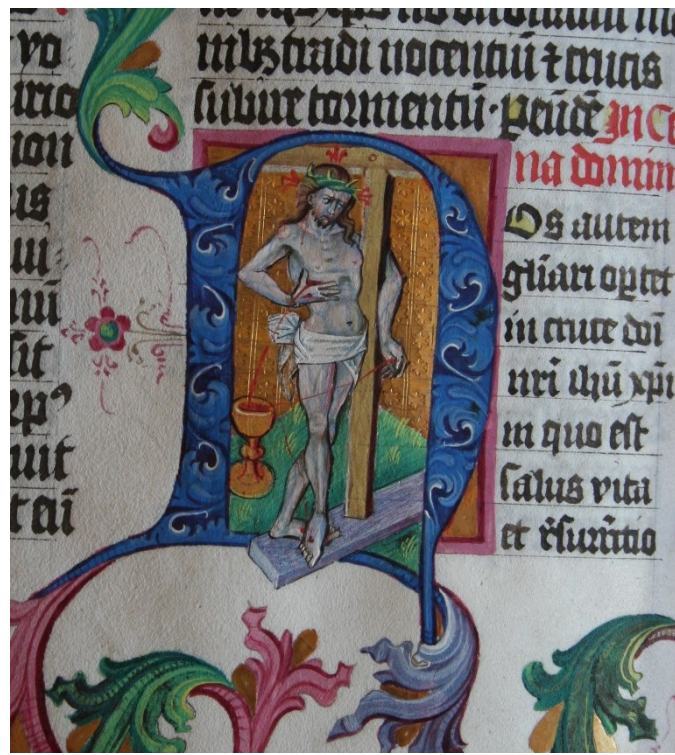 yo
irio
ion
us
ui
nū
sit
rpꝰ
uit
t eū
nibꝫ tradi nocentiū ⁊ crucis
subire tormentū. p eūdē In Ce
na domin
N
os autem
gl̄iari optet
in cruce doī
nr̄i ihū xp̄i
in quo est
salus vita